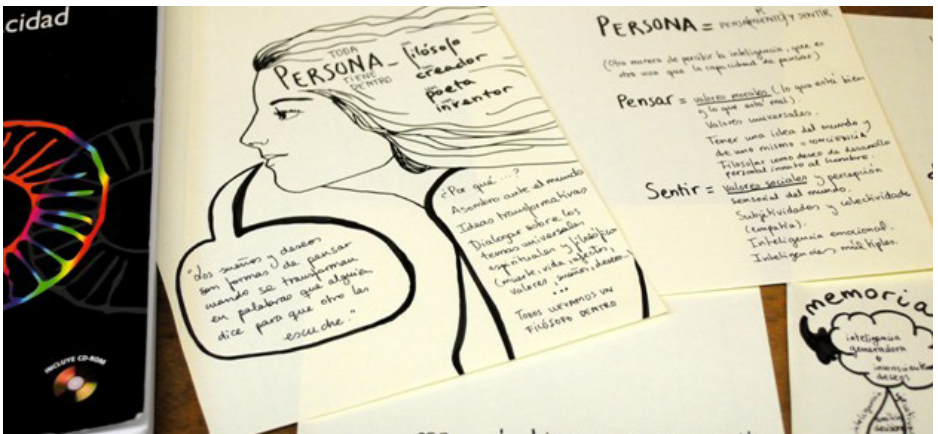 cidad
INCLUYE CD-ROM
TODA
PERSONA_
TIENE
DENTRO
filósofo
creador
poeta
inventor
"Los sueños y deseos
son formas de pensar
cuando se transforman
en palabras que alguien
dice para que otro las
escuche."
¿Por qué ....?
Asombro ante el mundo
Ideas transformativas
Dialogar sobre los
temas universales
espirituales y filosóficos
(muerte, vida, afectos,
valores, sueños, deseos...
...
TODOS LLEVAMOS UN
FILÓSOFO DENTRO
PERSONA = Y SENTIR
(Otra manera de percibir la inteligencia, que es
otra cosa que la capacidad de pensar)
Pensar = valores morales (lo que está bien
y lo que está mal).
Valores universales.
Tener una idea del mundo y
de uno mismo = conciencia
Filosofar como deseo de desarrollo
personal innato al hombre.
Sentir = valores sociales y percepción
sensorial del mundo.
Subjetividades y colectividade
(empatía).
Inteligencia emocional.
Inteligencias múltiples.
memoria
inteligencia
generadora
inconsciente
deseos